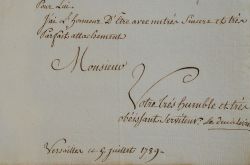 Pour Lui.
J'ai L'honneur D'Être avec un très Sincere et très
Parfait attachement
Monsieur
Votre très humble et très
obéissant Serviteur.
Versailles le 5 juillet 1789.